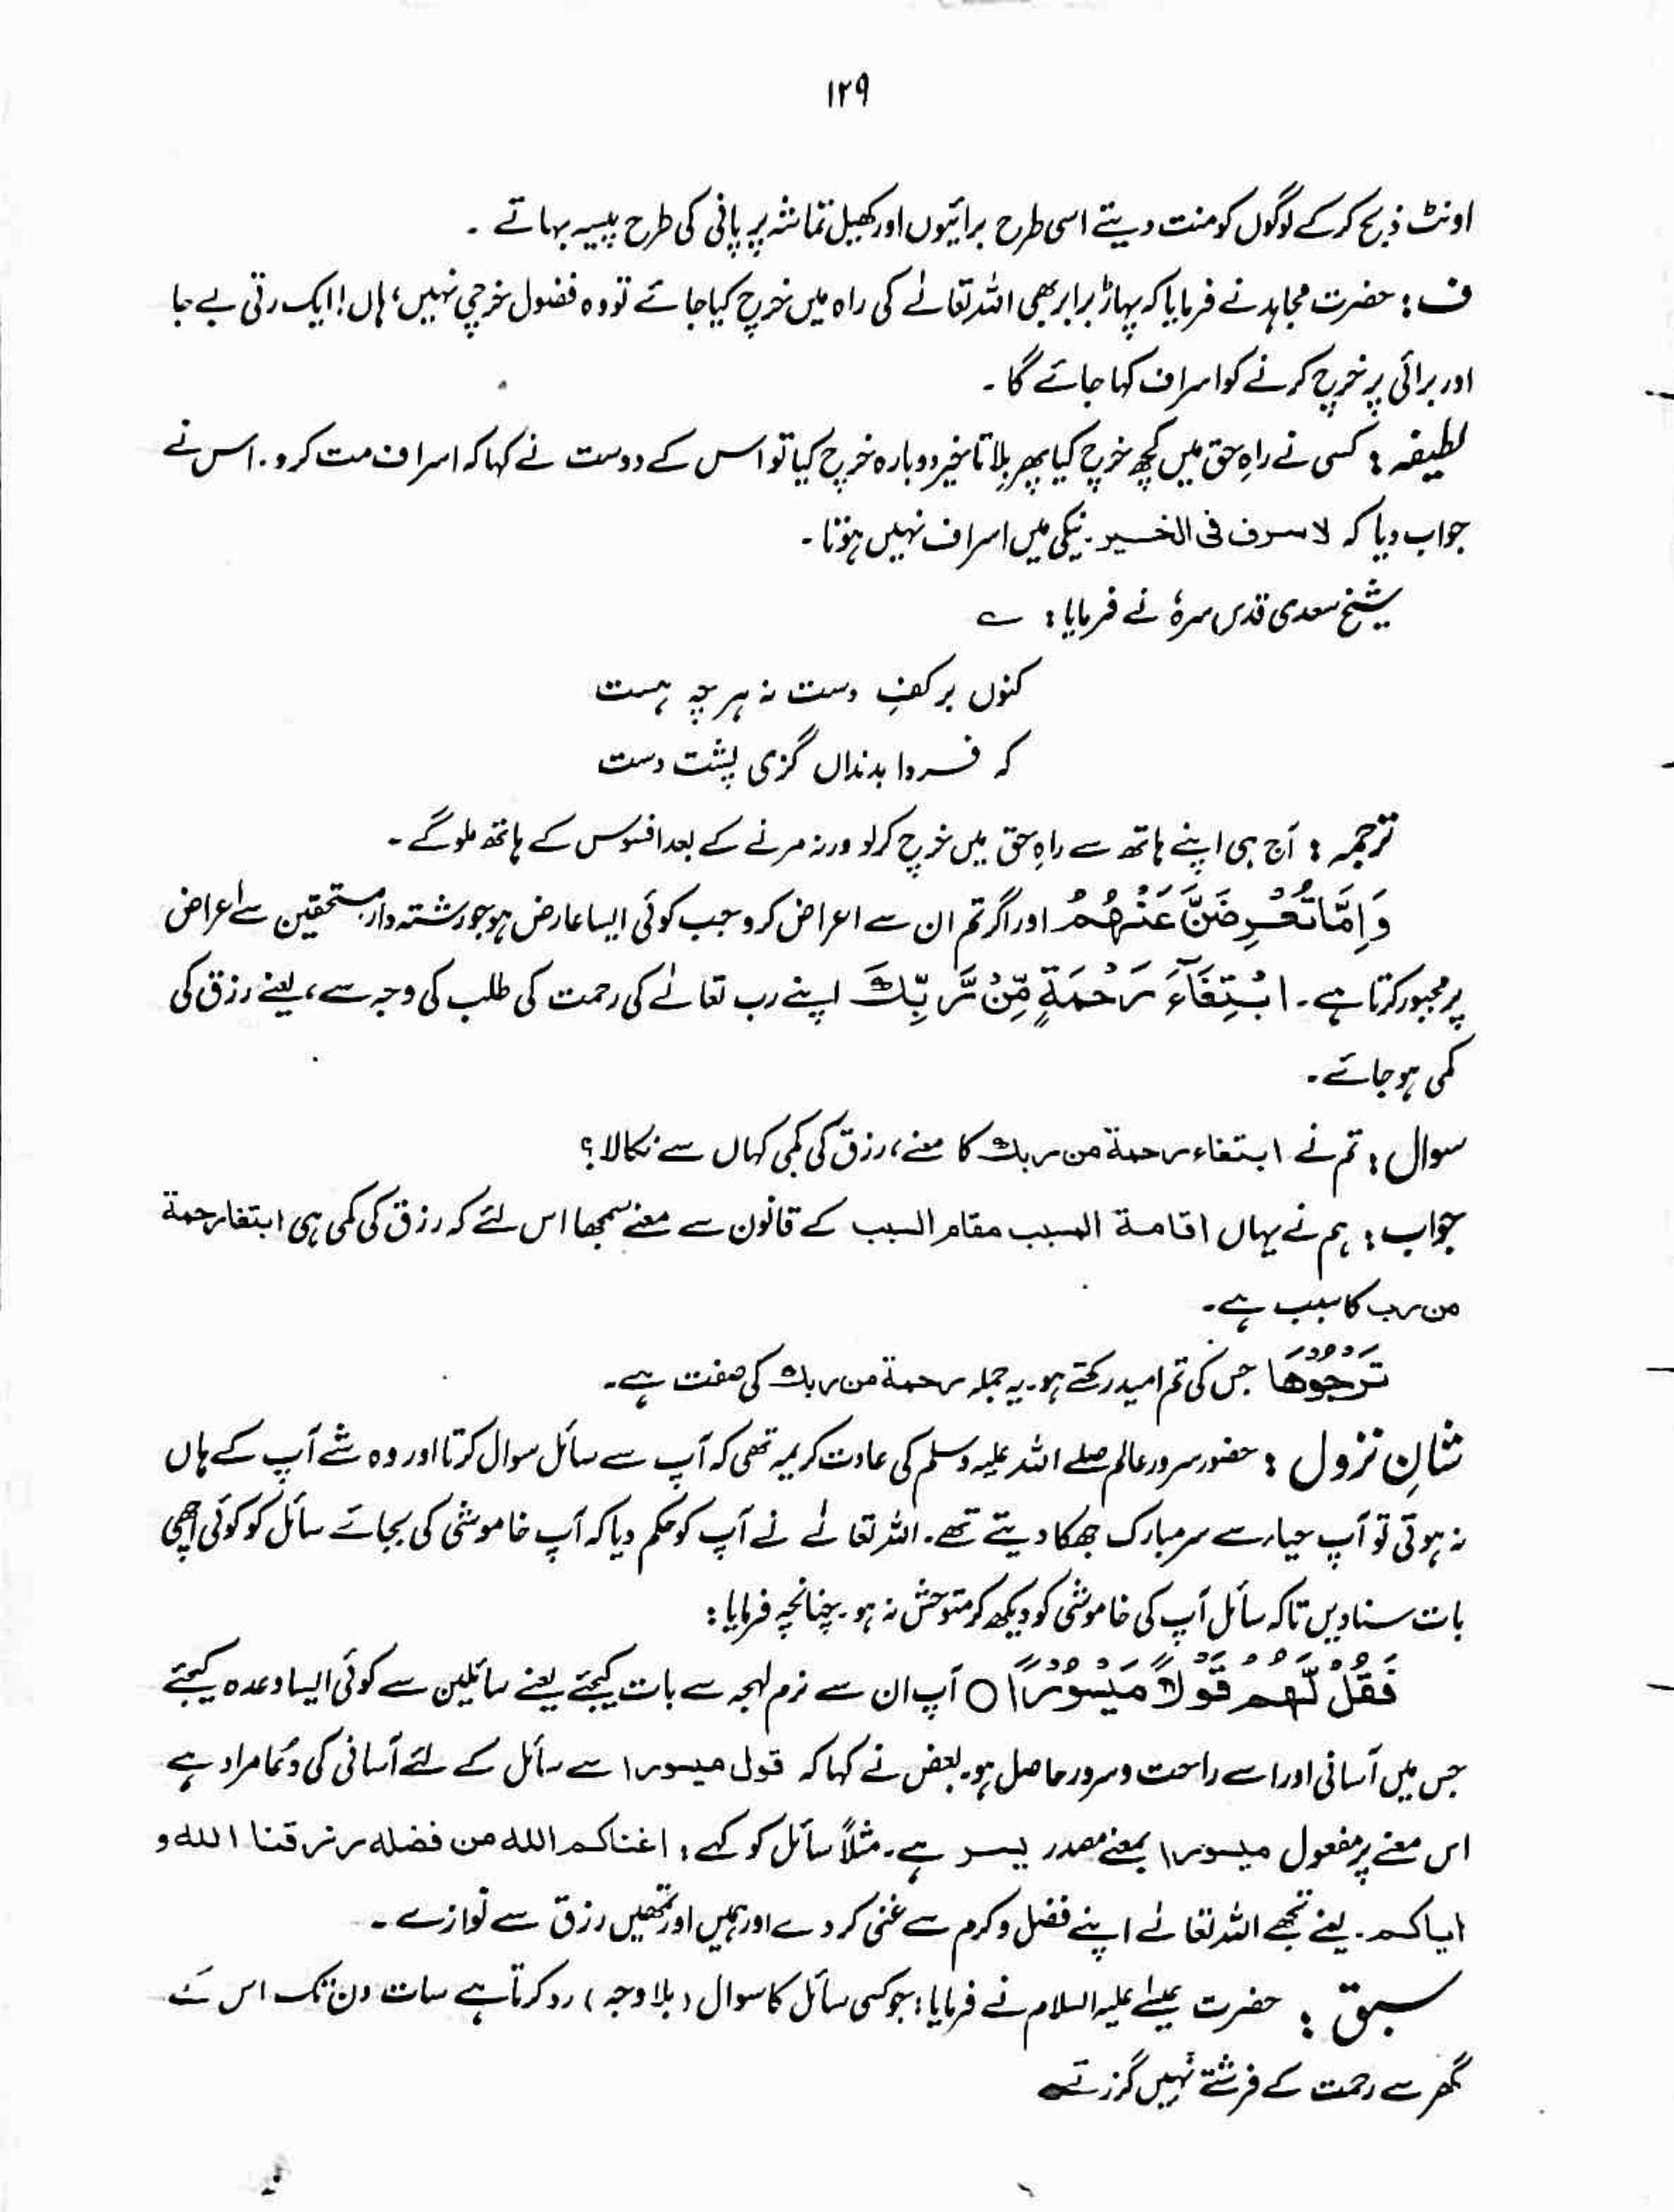 ۱۲۹
اونٹ ذبح کرکے لوگوں کو منت دیتے اسی طرح برائیوں اور کھیل تماشہ پر پانی کی طرح پیسہ بہاتے ۔
ف : حضرت مجاہد نے فرمایا کہ پہاڑ برابر بھی اللہ تعالےٰ کی راہ میں خرچ کیا جائے تو وہ فضول خرچی نہیں، ہاں! ایک رتی بے جا
اور برائی پر خرچ کرنے کو اسراف کہا جائے گا ۔
لطیفہ : کسی نے راہِ حق میں کچھ خرچ کیا پھر بلا تاخیر دوبارہ خرچ کیا تو اس کے دوست نے کہا کہ اسراف مت کرو . اس نے
جواب دیا کہ لا سرف فی الخسیر . نیکی میں اسراف نہیں ہوتا ۔
شیخ سعدی قدس سرہٗ نے فرمایا : ؎
کنوں بر کفِ دست نہ ہر چہ ہست
کہ فردا بدنداں گزی پشت دست
ترجمہ : آج ہی اپنے ہاتھ سے راہِ حق میں خرچ کر لو ورنہ مرنے کے بعد افسوس کے ہاتھ ملوگے ۔
وَ اِمَّا تُعْرِضَنَّ عَنْهُمُ اور اگر تم ان سے اعراض کرو جب کوئی ایسا عارض ہو جو رشتہ دار مستحقین سے اعراض
پر مجبور کرتا ہے ۔ ابْتِغَآءَ رَحْمَةٍ مِّنْ رَّبِّكَ اپنے رب تعالےٰ کی رحمت کی طلب کی وجہ سے، یعنے رزق کی
کمی ہو جائے ۔
سوال : تم نے ابتغاء رحمة من ربك کا معنے، رزق کی کمی کہاں سے نکالا ؟
جواب : ہم نے یہاں اقامة المسبب مقام السبب کے قانون سے معنے سمجھا اس لئے کہ رزق کی کمی ہی ابتغا رحمة
من رب کا سبب ہے ۔
تَرْجُوْهَا جس کی تم امید رکھتے ہو. یہ جملہ رحمة من ربك کی صفت ہے ۔
شانِ نزول : حضور سرور عالم صلے اللہ علیہ وسلم کی عادت کریمہ تھی کہ آپ سے سائل سوال کرتا اور وہ شے آپ کے ہاں
نہ ہوتی تو آپ حیاء سے سر مبارک جھکا دیتے تھے . اللہ تعالےٰ نے آپ کو حکم دیا کہ آپ خاموشی کی بجائے سائل کو کوئی اچھی
بات سنا دیں تاکہ سائل آپ کی خاموشی کو دیکھ کر متوحش نہ ہو . چنانچہ فرمایا :
فَقُلْ لَّهُمْ قَوْلًا مَّيْسُوْرًا ○ آپ ان سے نرم لہجہ سے بات کیجئے یعنے سائلین سے کوئی ایسا وعدہ کیجئے
جس میں آسانی اور اسے راحت و سرور حاصل ہو. بعض نے کہا کہ قول میسورا سے سائل کے لئے آسانی کی دُعا مراد ہے
اس معنے پر مفعول میسورا بمعنے مصدر یسر ہے . مثلاً سائل کو کہے : اغناکم الله من فضله رزقنا الله و
ایاکم . یعنے تجھے اللہ تعالےٰ اپنے فضل و کرم سے غنی کر دے اور ہمیں اور تمھیں رزق سے نوازے ۔
سبق : حضرت عیسے علیہ السلام نے فرمایا : جو کسی سائل کا سوال ( بلا وجہ ) رد کرتا ہے سات دن تک اس کے
گھر سے رحمت کے فرشتے نہیں گزرتے